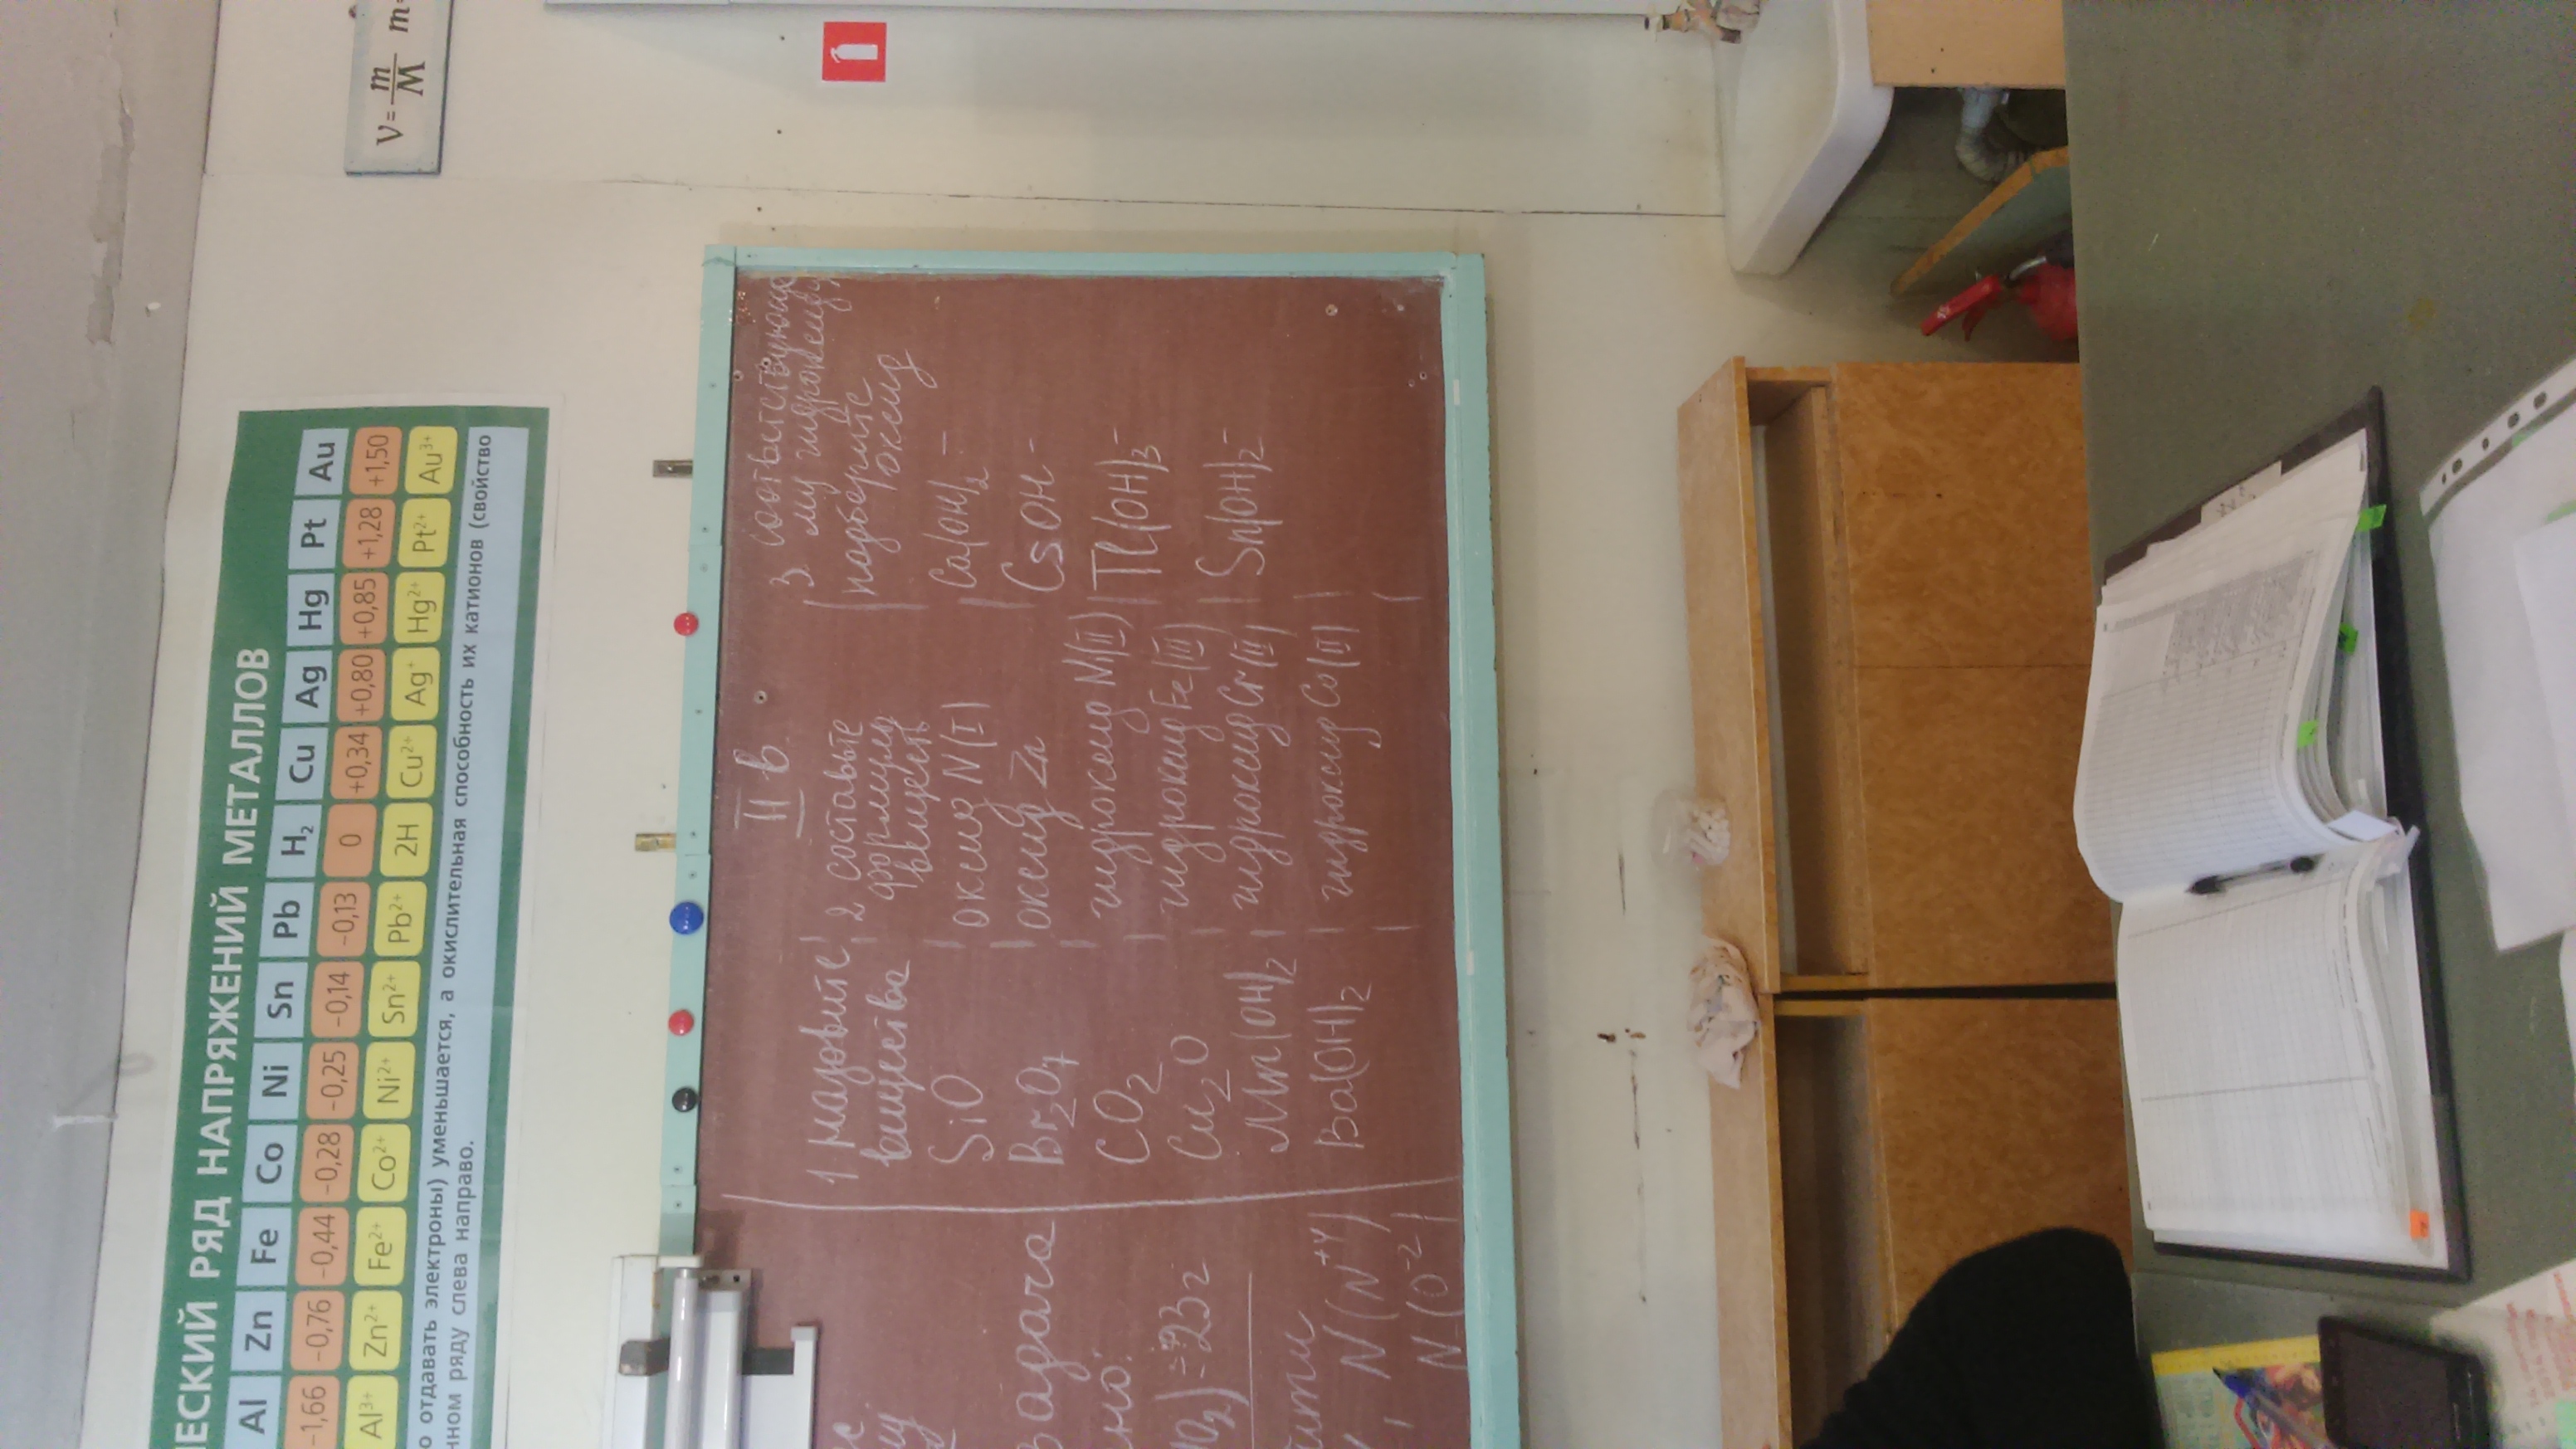 ЧЕСКИЙ РЯД НАПРЯЖЕНИЙ МЕТАЛЛОВ
Al Zn Fe Co Ni Sn Pb H₂ Cu Ag Hg Pt Au
-1,66 -0,76 -0,44 -0,28 -0,25 -0,14 -0,13 0 +0,34 +0,80 +0,85 +1,28 +1,50
Al³⁺ Zn²⁺ Fe²⁺ Co²⁺ Ni²⁺ Sn²⁺ Pb²⁺ 2H Cu²⁺ Ag⁺ Hg²⁺ Pt²⁺ Au³⁺
о отдавать электроны) уменьшается, а окислительная способность их катионов (свойство
нном ряду слева направо.
V = m/M m
II в
1 назовите
вещества
SiO
Br₂O₇
CO₂
Cu₂O
Mn(OH)₂
Ba(OH)₂
2 составьте
формулы
веществ
оксид N(I)
оксид Zn
гидроксид Ni(II)
гидроксид Fe(III)
гидроксид Cr(II)
гидроксид Co(II)
3. соответствующе
му гидроксиду
подберите
оксид
Ca(OH)₂ -
CsOH -
Tl(OH)₃ -
Sn(OH)₂ -
адача
но:
O₂) = 23г
йти
N(N⁺⁴)
N(O⁻²)